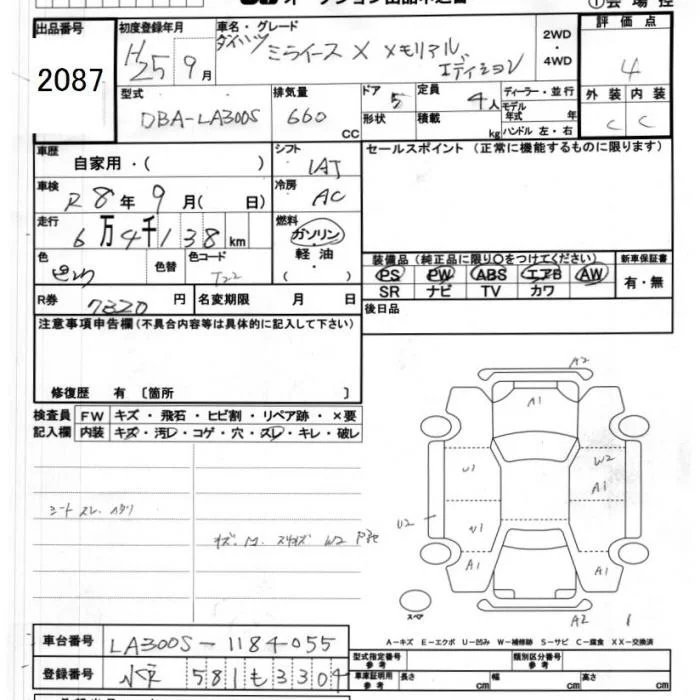 オークション出品申込書
①会場控
出品番号 2087
初度登録年月 H25 9月
車名・グレード ダイハツ ミライース X メモリアルエディション
2WD・4WD
評価点 4
外装 C 内装 C
型式 DBA-LA300S
排気量 660 cc
ドア 5 形状
定員 4人 積載 kg
ディーラー・並行
モデル年式 年
ハンドル 左・右
車歴 自家用・( )
シフト IAT
セールスポイント (正常に機能するものに限ります)
車検 R8年 9月( 日)
冷房 AC
走行 6万4千138km
燃料 ガソリン
軽油・
( )
色 色替 色コード T22
装備品 (純正品に限り○をつけてください)
新車保証書
PS PW ABS エアB AW
SR ナビ TV カワ
有・無
R券 7320円
名変期限 月 日
後日品
注意事項申告欄 (不具合内容等は具体的に記入して下さい)
修復歴 有 〔箇所 〕
検査員 FW キズ・飛石・ヒビ割・リペア跡・×要
記入欄 内装 キズ・汚レ・コゲ・穴・スレ・キレ・破レ
A2
A1
U1 W2
A1
シートスレ
U2
U1
W2
A1 A1
スペア
A2
A-キズ E-エクボ U-凹み W-補修跡 S-サビ C-腐食 XX-交換済
車台番号 LA300S-1184055
型式指定番号 参考
類別区分番号 参考
登録番号 581 も 3304
車庫証明用 参考 長さ cm 幅 cm 高さ cm